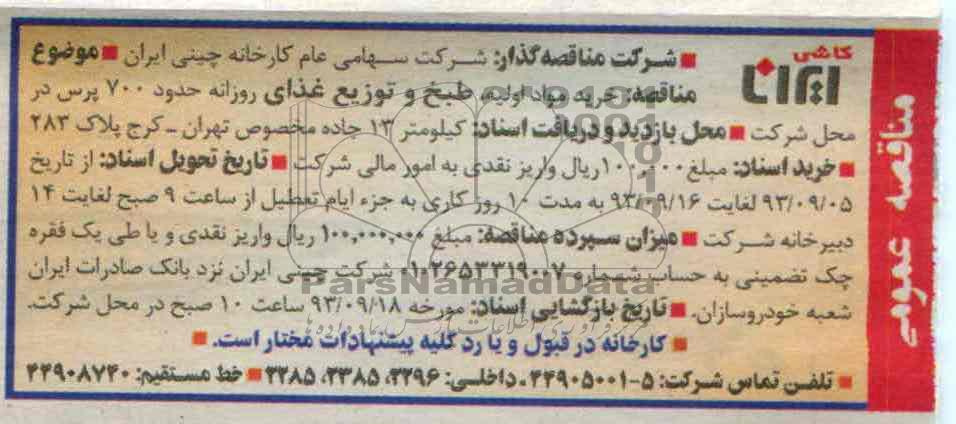 مناقصه عمومی
کاشی
ایرانا
■ شرکت مناقصه‌گذار: شرکت سهامی عام کارخانه چینی ایران ■ موضوع
مناقصه: خرید مواد اولیه، طبخ و توزیع غذای روزانه حدود ۷۰۰ پرس در
محل شرکت ■ محل بازدید و دریافت اسناد: کیلومتر ۱۳ جاده مخصوص تهران - کرج پلاک ۲۸۳
■ خرید اسناد: مبلغ ۱۰۰,۰۰۰ ریال واریز نقدی به امور مالی شرکت ■ تاریخ تحویل اسناد: از تاریخ
۹۳/۰۹/۰۵ لغایت ۹۳/۰۹/۱۶ به مدت ۱۰ روز کاری به جزء ایام تعطیل از ساعت ۹ صبح لغایت ۱۴
دبیرخانه شرکت ■ میزان سپرده مناقصه: مبلغ ۱۰۰,۰۰۰,۰۰۰ ریال واریز نقدی و یا طی یک فقره
چک تضمینی به حساب شماره ۰۱۰۲۶۵۳۳۱۹۰۰۷ شرکت چینی ایران نزد بانک صادرات ایران
شعبه خودروسازان. ■ تاریخ بازگشایی اسناد: مورخه ۹۳/۰۹/۱۸ ساعت ۱۰ صبح در محل شرکت.
■ کارخانه در قبول و یا رد کلیه پیشنهادات مختار است. ■
■ تلفن تماس شرکت: ۵-۴۴۹۰۵۰۰۱، داخلی: ۲۲۹۶، ۲۳۸۵، ۲۲۸۵ ■ خط مستقیم: ۴۴۹۰۸۷۴۰
ParsNamadData